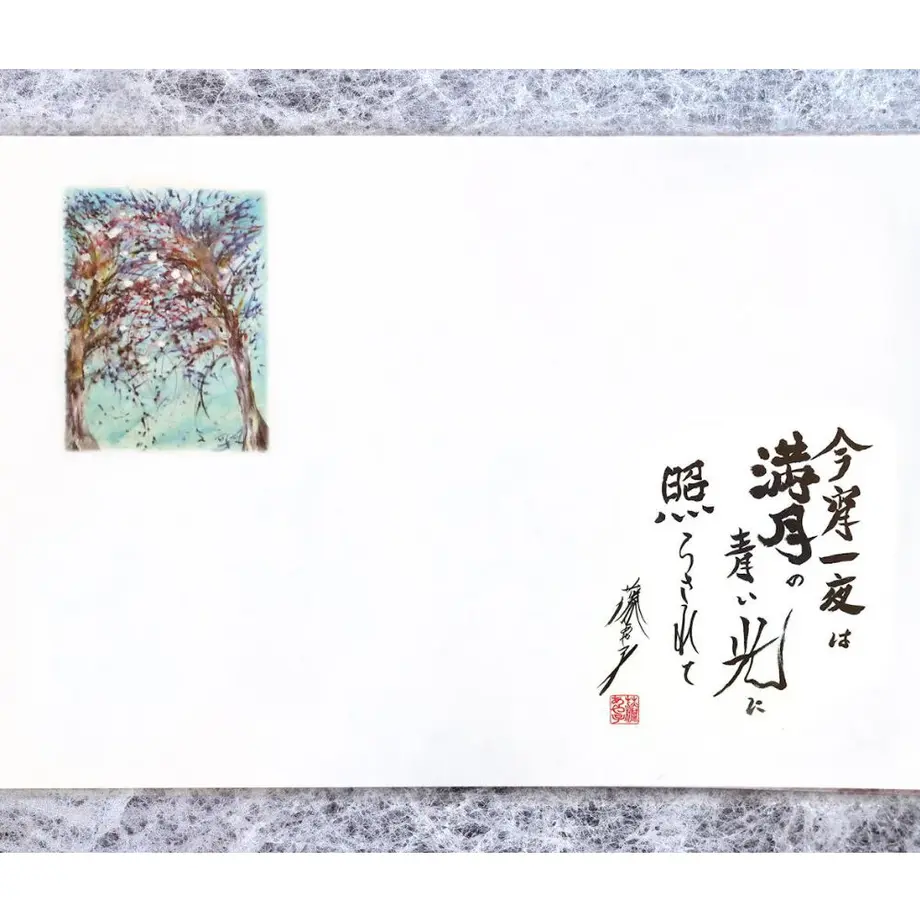 今宵一夜は
満月の
青い光に
照らされて